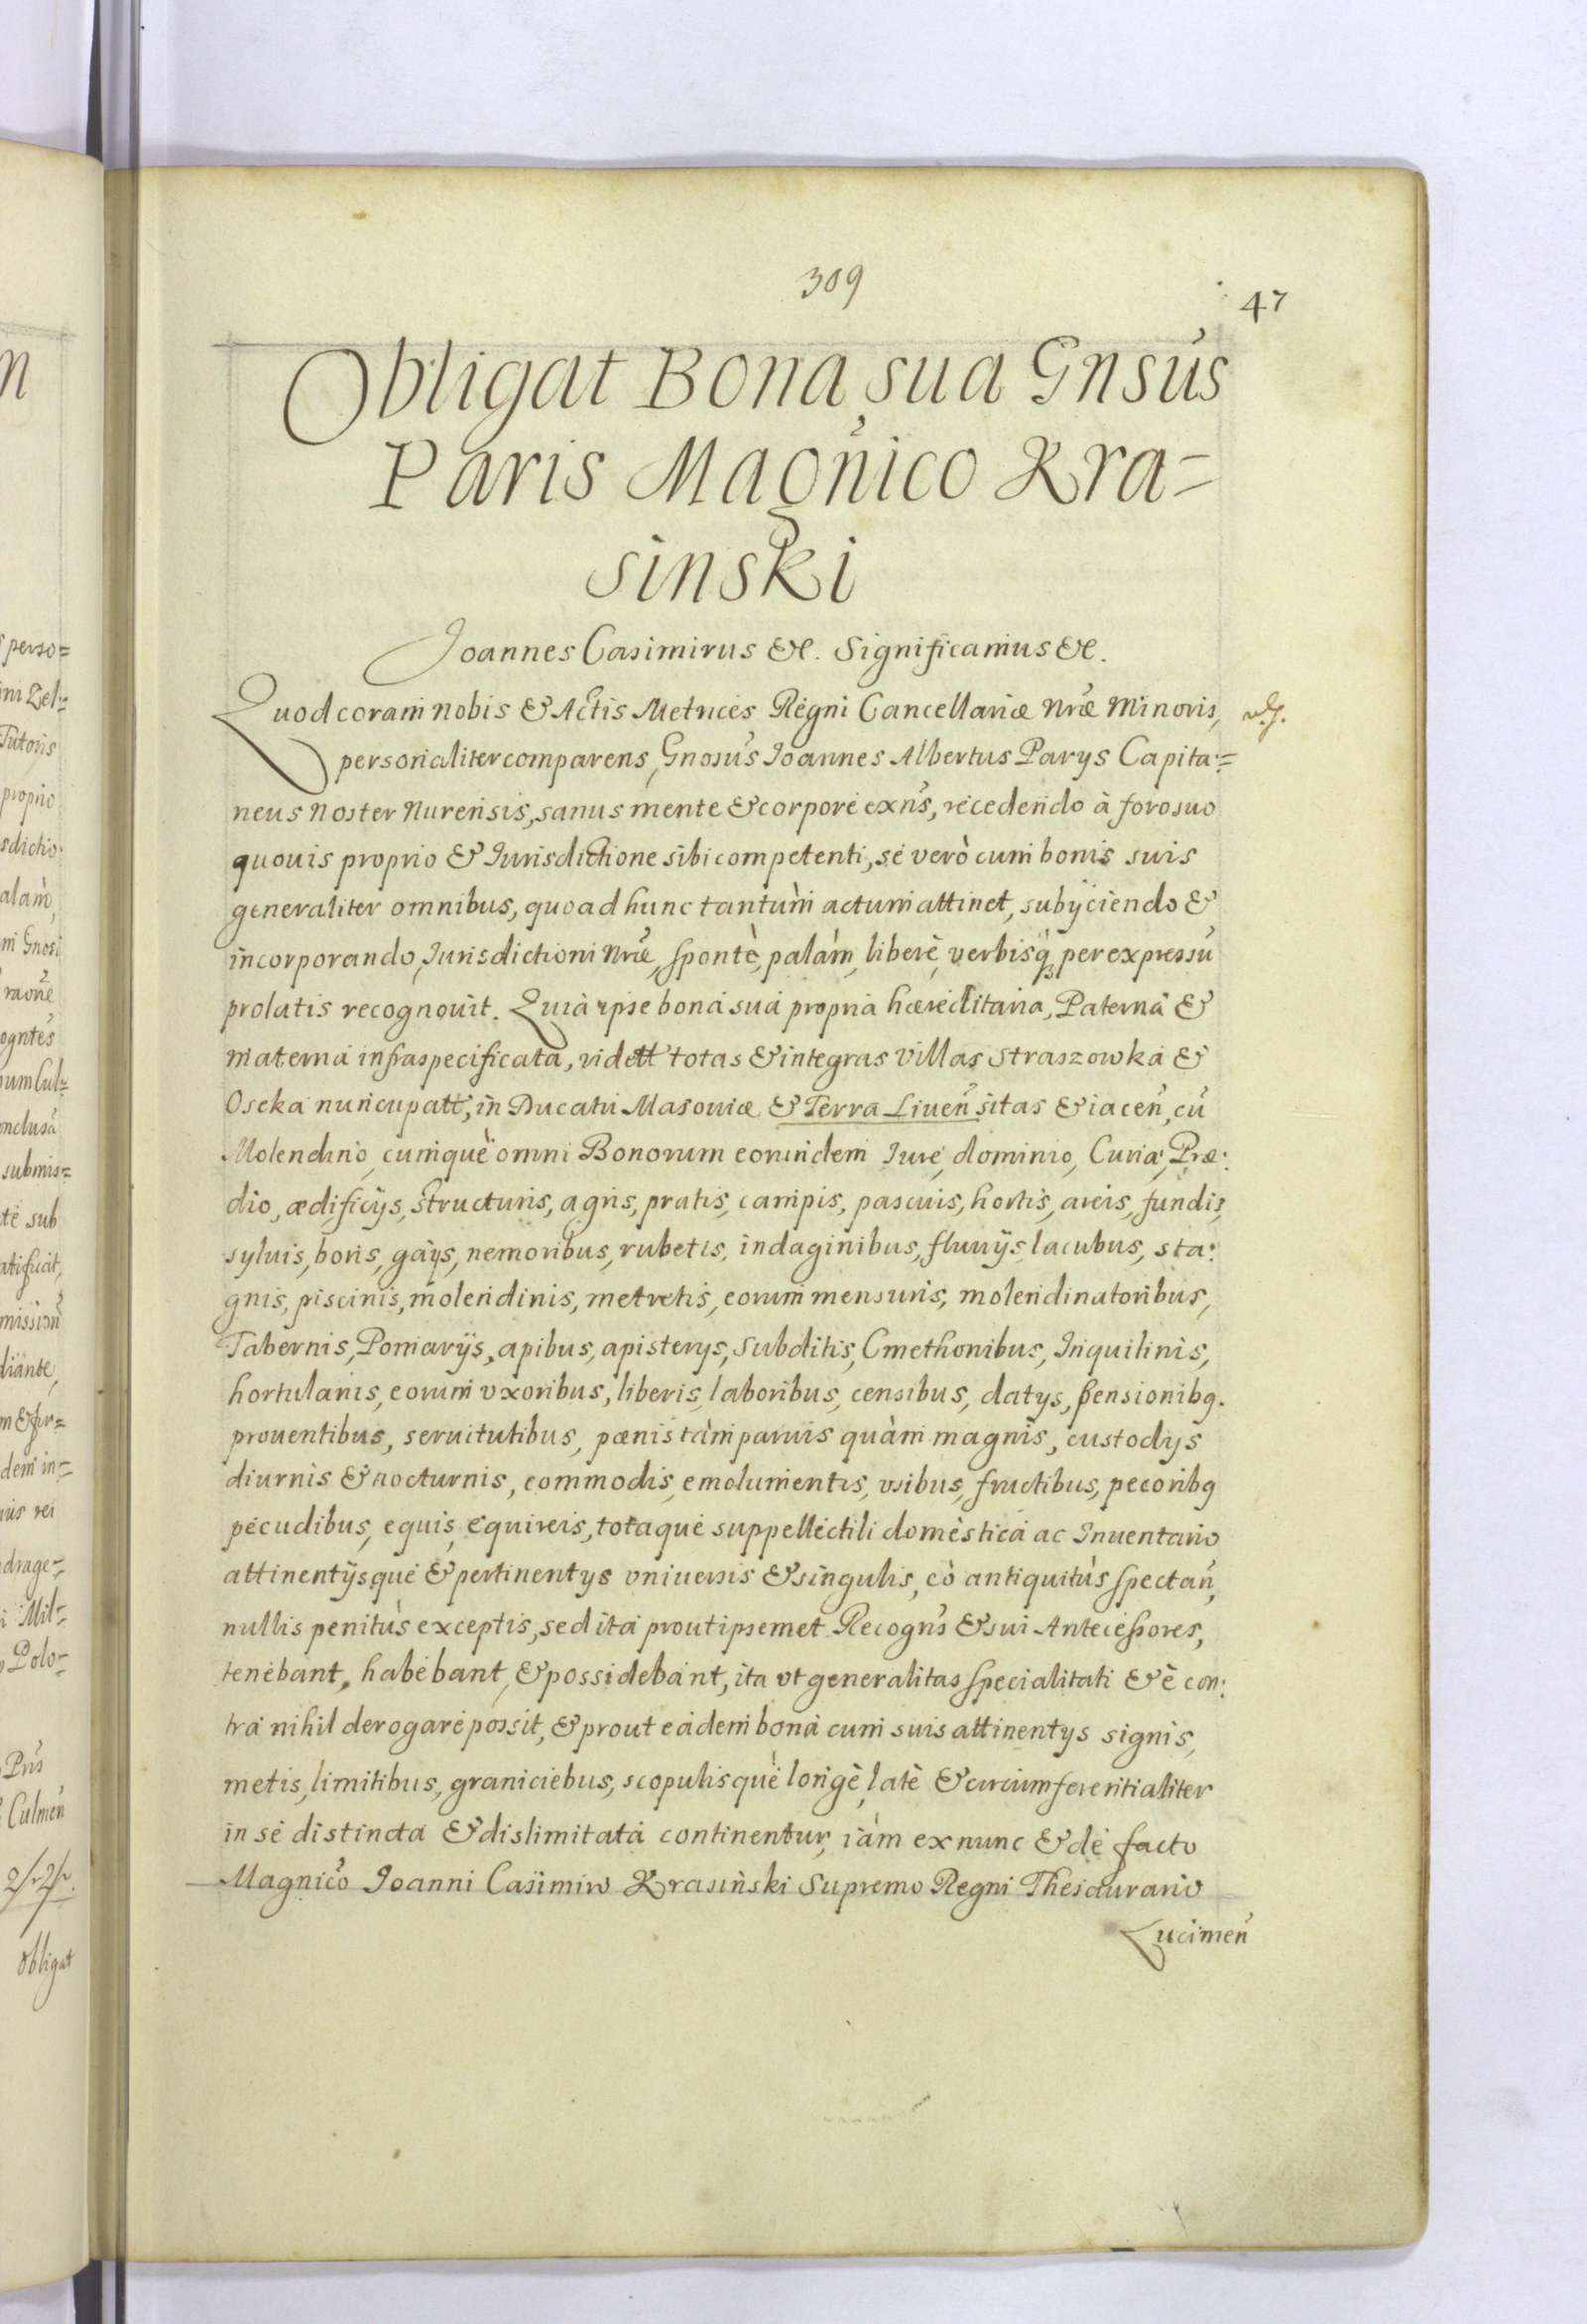 309
47
Obligat Bona sua Gnsus
Paris Magnico Kra=
sinski
Joannes Casimirus &c. Significamus &c.
Quod coram nobis & Actis Metrices Regni Cancellariæ Nræ Minoris,
personaliter comparens, Gnosus Joannes Albertus Parys Capita=
neus Noster Nurensis, sanus mente & corpore exns, recedendo à foro suo
quouis proprio & Jurisdictione sibi competenti, se verò cum bonis suis
generaliter omnibus, quo ad hunc tantùm actum attinet, subijciendo &
incorporando Jurisdictioni Nræ, spontè, palàm, liberè, verbisq, per expressu
prolatis recognouit. Quia ipse bona sua propria hæreditaria, Paterna &
materna infraspecificata, vidett totas & integras Villas Straszowka &
Oseka nuncupatt, in Ducatu Masouiæ & Terra Liuen sitas & iacen, cu
Molendino, cumque omni Bonorum eorundem Jure, dominio, Curia, Præ:
dio, ædificijs, structuris, agris, pratis, campis, pascuis, hortis, areis, fundis,
syluis, boris, gays, nemoribus, rubetis, indaginibus, fluuijs, lacubus, sta:
gnis, piscinis, molendinis, metretis, eorum mensuris, molendinatoribus,
Tabernis, Pomarijs, apibus, apisterys, Subditis, Cmethonibus, Inquilinis,
hortulanis, eorum vxoribus, liberis, laboribus, censibus, datys, pensionibq.
prouentibus, seruitutibus, pœnis tàm paruis quàm magnis, custodys
diurnis & nocturnis, commodis, emolumentis, vsibus, fructibus, pecoribq
pecudibus, equis, equireis, totaque suppellectili domestica ac Inuentario
attinentijsque & pertinentys vniuersis & singulis, eò antiquitùs spectan,
nullis penitùs exceptis, sed ita prout ipsemet Recogns & sui Antecessores,
tenebant, habebant, & possidebant, ita vt generalitas specialitati & è con:
tra nihil derogare possit, & prout eadem bona cum suis attinentys signis,
metis, limitibus, graniciebus, scopulisque longè, latè & circumferentialiter
in se distincta & dislimitata continentur, iàm ex nunc & de facto
Magnico Joanni Casimiro Krasinski Supremo Regni Thesaurario
Lucimen
perso=
Tutoris
proprio
alam,
m Gnosi
raone
ogntes
um Cul=
nclusa
submis=
te sub
diante,
dem in=
drage=
i Mil=
Polo=
Prns
Culmen
Obligat